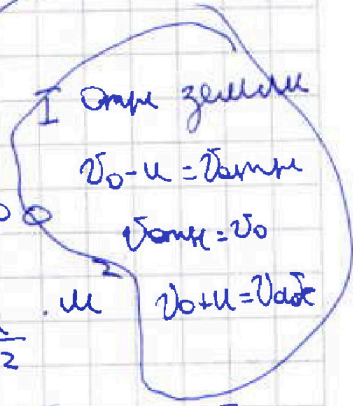 I отн земли
v₀ - u = vотн
vотн = v₀
2
. u v₀ + u = vабс
2